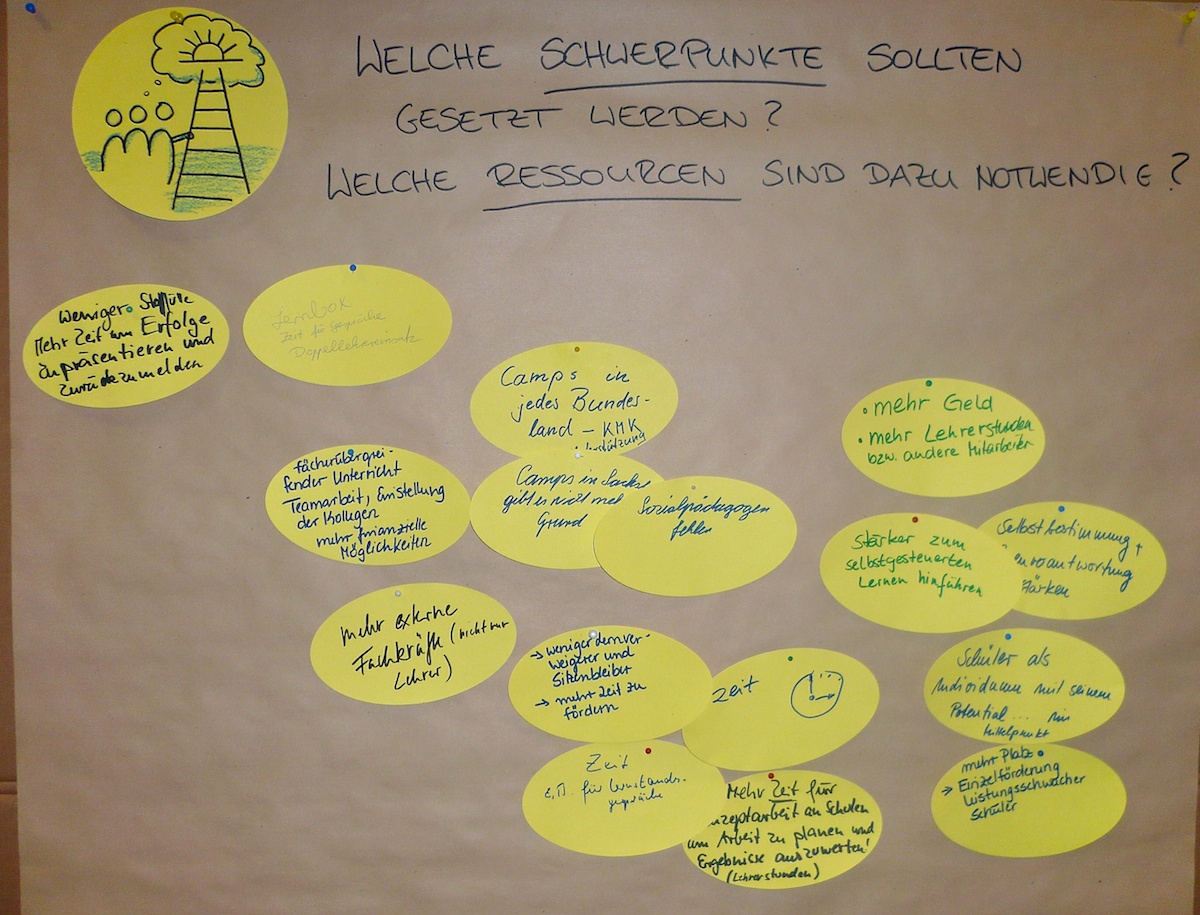 WELCHE SCHWERPUNKTE SOLLTEN
GESETZT WERDEN?
WELCHE RESSOURCEN SIND DAZU NOTWENDIG?
weniger Stoffülle
Mehr Zeit um Erfolge
zu präsentieren und
zurückzumelden
Lernbox
Zeit für Gespräche
Doppellehrereinsatz
Camps in
jedes Bundes-
land – KMK
fächerübergrei-
fender Unterricht
Teamarbeit, Einstellung
der Kollegen
mehr finanzielle
Möglichkeiten
Camps in
gibt es nicht mal
Grund
Sozialpädagogen
fehlen
• mehr Geld
• mehr Lehrerstunden
bzw. andere Mitarbeiter
Stärker zum
selbstgesteuerten
Lernen hinführen
Selbstbestimmung +
stärken
mehr externe
Fachkräfte (nicht nur
Lehrer)
→ weniger Lernver-
weigerer und
Sitzenbleiber
→ mehr Zeit zu
fördern
Zeit
Schüler als
Individuum mit seinem
Potential... im
Mittelpunkt
Zeit
z.B. für Lernstands-
gespräche
Mehr Zeit für
an Schulen
um Arbeit zu planen und
Ergebnisse auszuwerten!
(Lehrerstunden)
mehr Platz
→ Einzelförderung
leistungsschwacher
Schüler